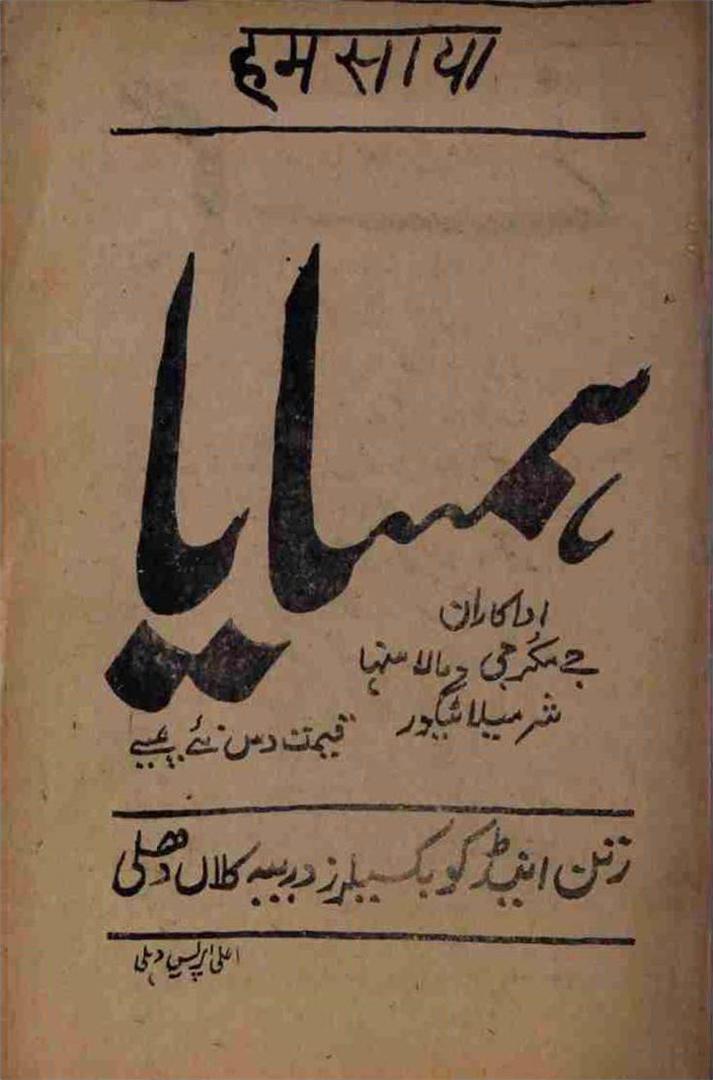 हमसाया
ہمسایا
اداکاران
جے مکرجی و مالا سنہا
شرمیلا ٹیگور
قیمت دس نئے پیسے
رتن اینڈ کو بکسیلرز دریبہ کلاں دھلی
اعلی پریس دہلی